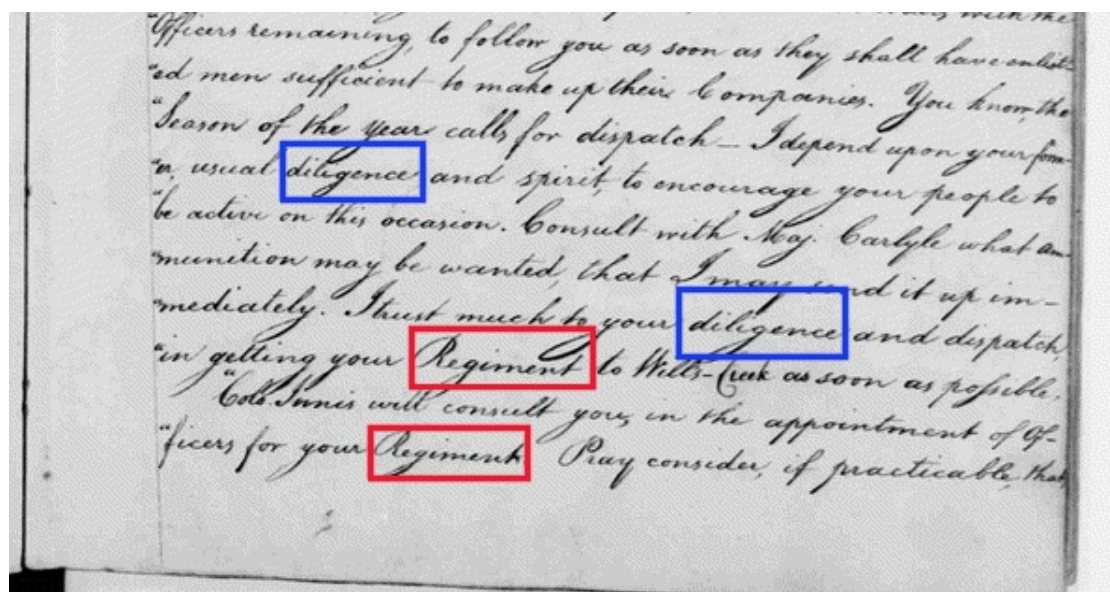 with the
"Officers remaining, to follow you as soon as they shall have enlist-
"ed men sufficient to make up their Companies. You know, the
"Season of the Year calls for dispatch — I depend upon your form-
"er, usual diligence and spirit, to encourage your people to
"be active on this occasion. Consult with Maj. Carlyle what am-
"munition may be wanted, that I may send it up im-
"mediately. I trust much to your diligence and dispatch,
"in getting your Regiment to Wills-Creek as soon as possible.
"Colo. Innis will consult you, in the appointment of Of-
"ficers for your Regiment. Pray consider, if practicable, that